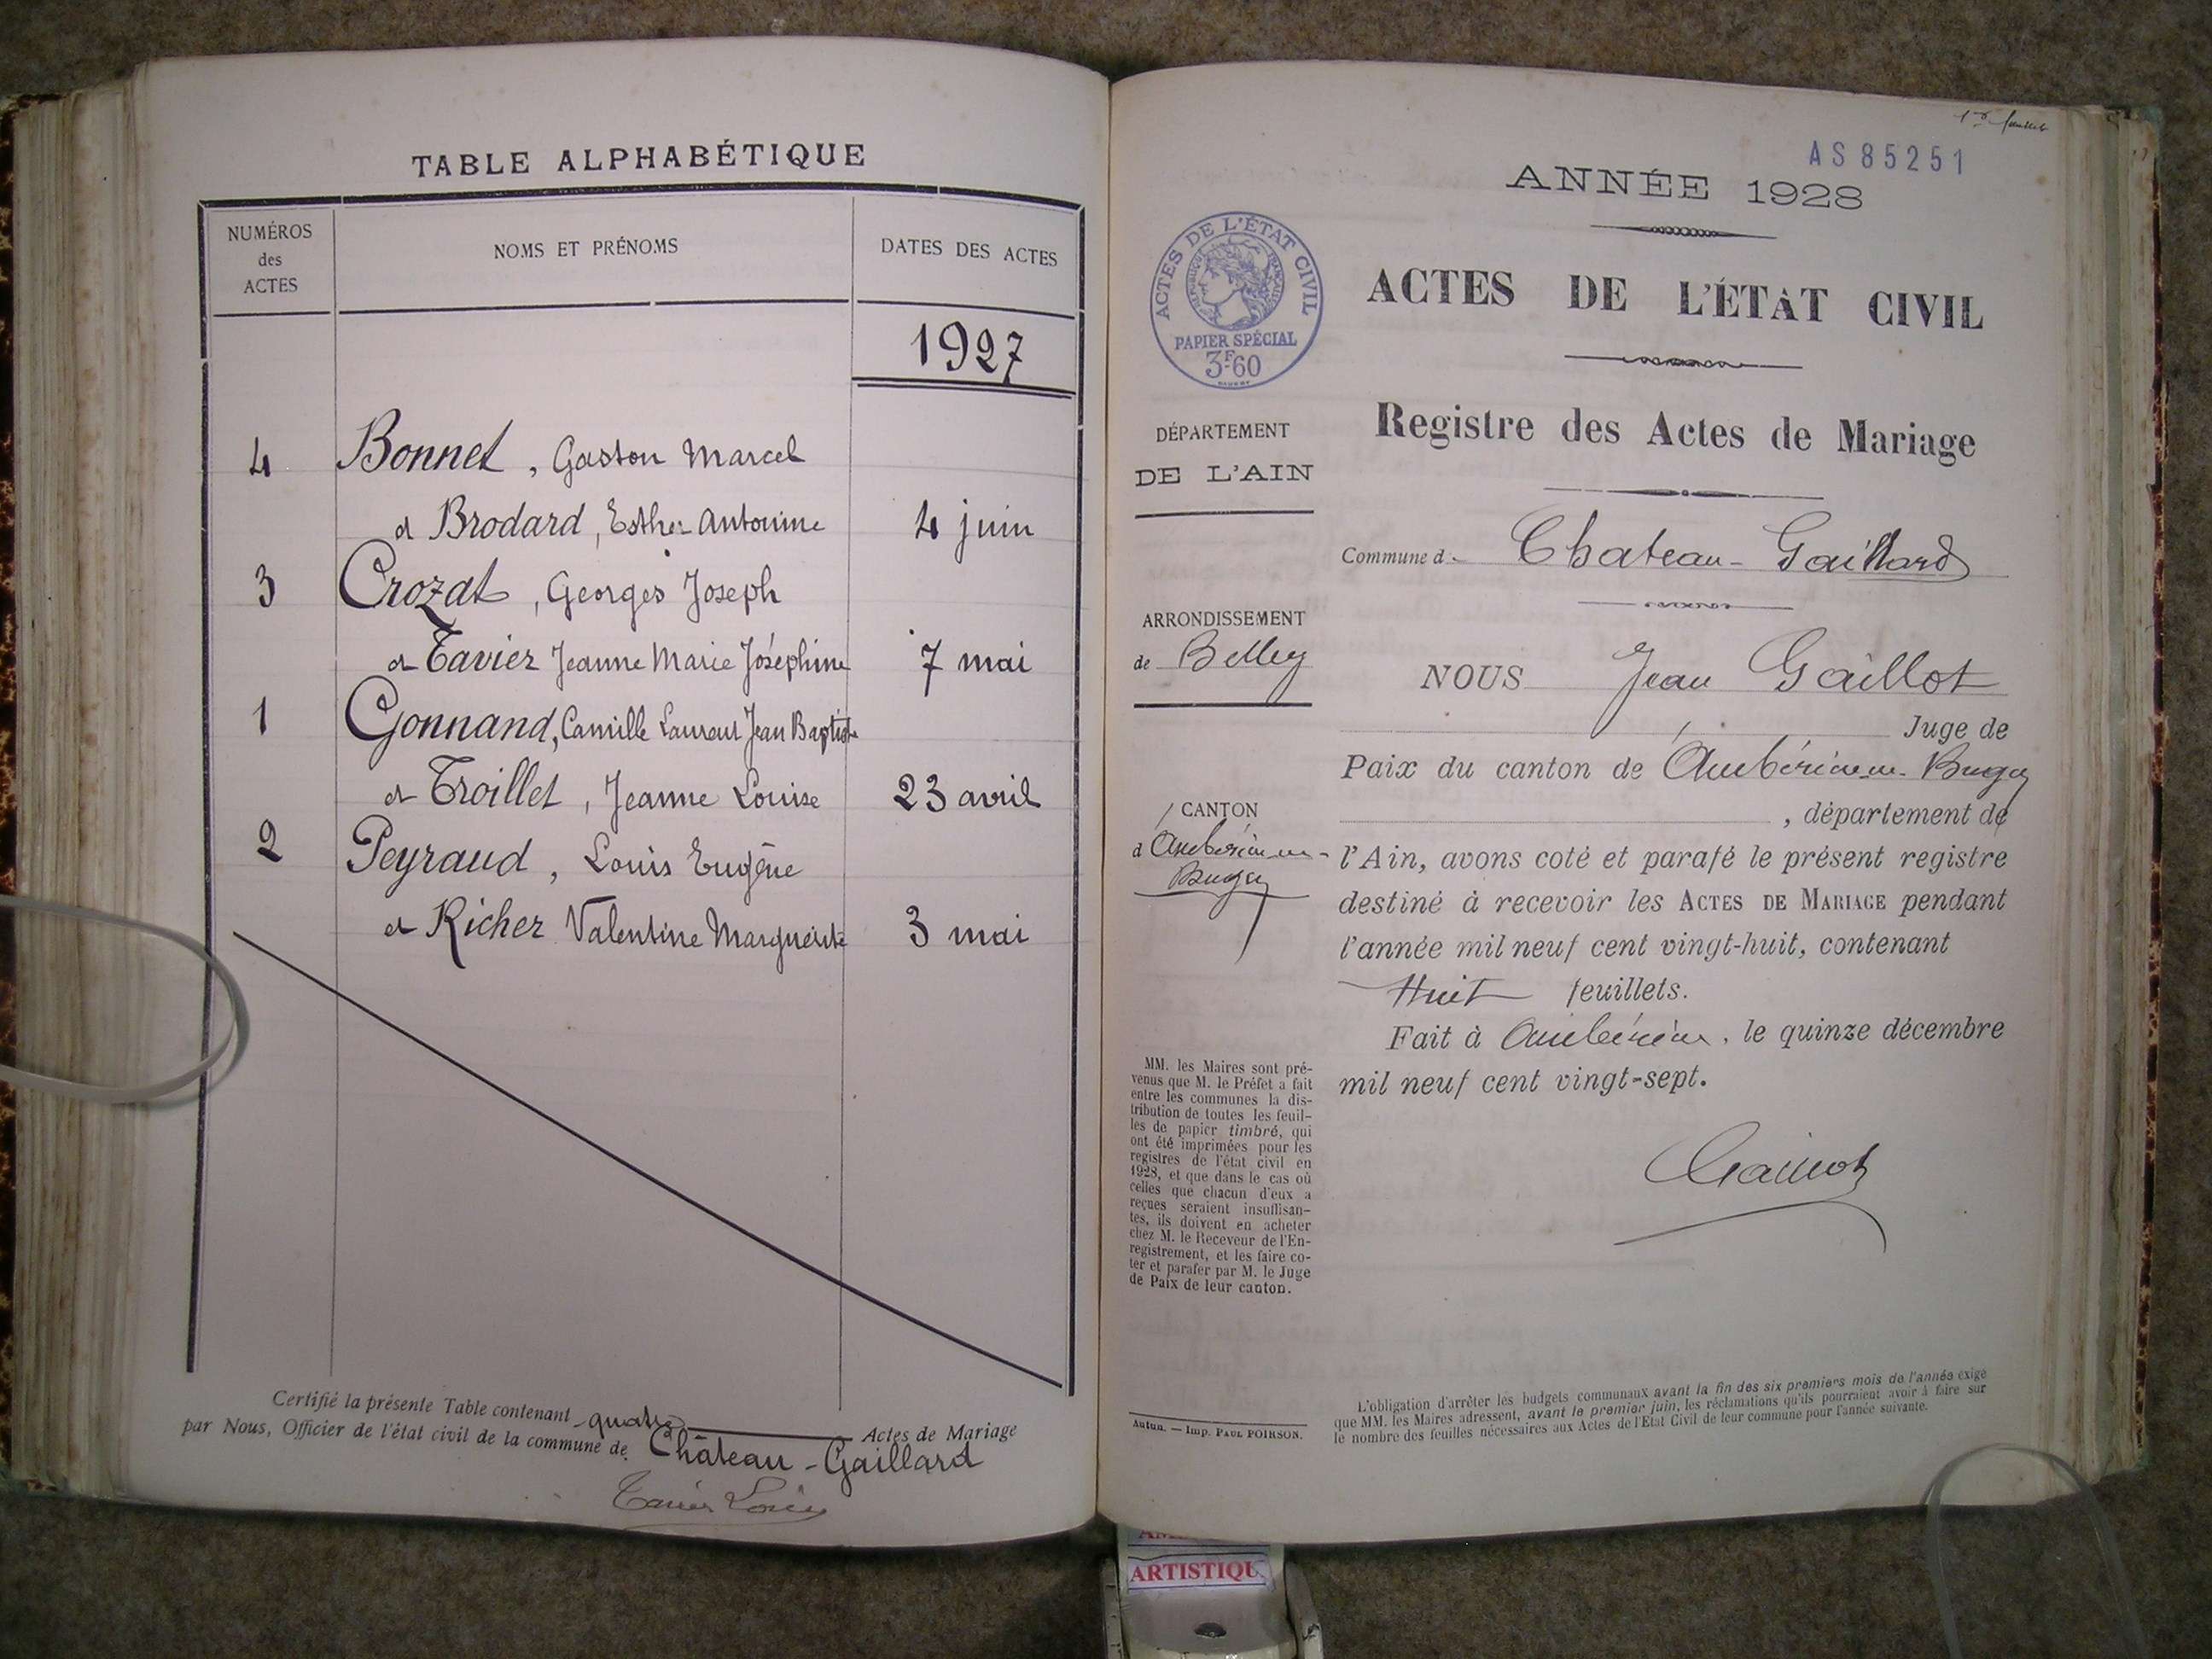 TABLE ALPHABÉTIQUE
NUMÉROS
des
ACTES
NOMS ET PRÉNOMS
DATES DES ACTES
1927
4 Bonnet, Gaston Marcel
et Brodard, Esther Antonine 4 juin
3 Crozat, Georges Joseph
et Tavier Jeanne Marie Joséphine 7 mai
1 Gonnand, Camille Laurent Jean Baptiste
et Troillet, Jeanne Louise 23 avril
2 Peyraud, Louis Eugène
et Richer Valentine Marguerite 3 mai
Certifié la présente Table contenant quatre Actes de Mariage
par Nous, Officier de l'état civil de la commune de Château-Gaillard
Tavier Louis
1er feuillet
AS 85251
ANNÉE 1928
ACTES DE L'ÉTAT CIVIL
RÉPUBLIQUE FRANÇAISE
PAPIER SPÉCIAL
3F.60
ACTES DE L'ÉTAT CIVIL
Registre des Actes de Mariage
DÉPARTEMENT
DE L'AIN
Commune d Chateau-Gaillard
ARRONDISSEMENT
de Belley
CANTON
d'Ambérieu en-
Bugey
NOUS Jean Gaillot
Juge de
Paix du canton de Ambérieu en Bugey
, département de
l'Ain, avons coté et parafé le présent registre
destiné à recevoir les ACTES DE MARIAGE pendant
l'année mil neuf cent vingt-huit, contenant
Huit feuillets.
Fait à Ambérieu, le quinze décembre
mil neuf cent vingt-sept.
Gaillot
MM. les Maires sont pré-
venus que M. le Préfet a fait
entre les communes la dis-
tribution de toutes les feuil-
les de papier timbré, qui
ont été imprimées pour les
registres de l'état civil en
1928, et que dans le cas où
celles que chacun d'eux a
reçues seraient insuffisan-
tes, ils doivent en acheter
chez M. le Receveur de l'En-
registrement, et les faire co-
ter et parafer par M. le Juge
de Paix de leur canton.
Autun. — Imp. PAUL POIRSON.
L'obligation d'arrêter les budgets communaux avant la fin des six premiers mois de l'année exige
que MM. les Maires adressent, avant le premier juin, les réclamations qu'ils pourraient avoir à faire sur
le nombre des feuilles nécessaires aux Actes de l'État Civil de leur commune pour l'année suivante.
ARTISTIQU